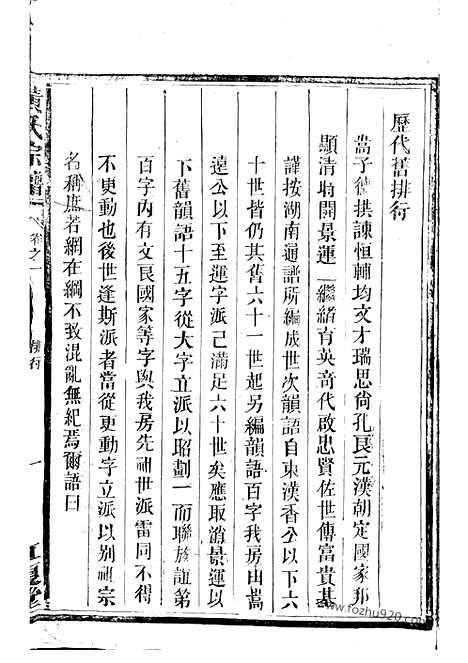 歷代舊排行
嵩子德拱諫恒輔均文才瑞思尙孔艮元漢朝定國家邦
顯清時開景運一繼緒育英奇代啟忠賢佐世傳富貴基
謹按湖南通譜所編成世次韻語自東漢香公以下六
十世皆仍其舊六十一世起另編韻語百字我房由嵩
遠公以下至運字派己滿足六十世矣應取消景運以
下舊韻語十五字從大字立派以昭劃一而聯族誼第
百字內有文艮國家等字與我房先祖世派雷同不得
不更動也後世逢斯派者當從更動字立派以別祖宗
名稱庶若網在綱不致混亂無紀焉爾語曰
黃氏宗譜
卷之一
排行
一
江夏堂
www.fozhu920.com